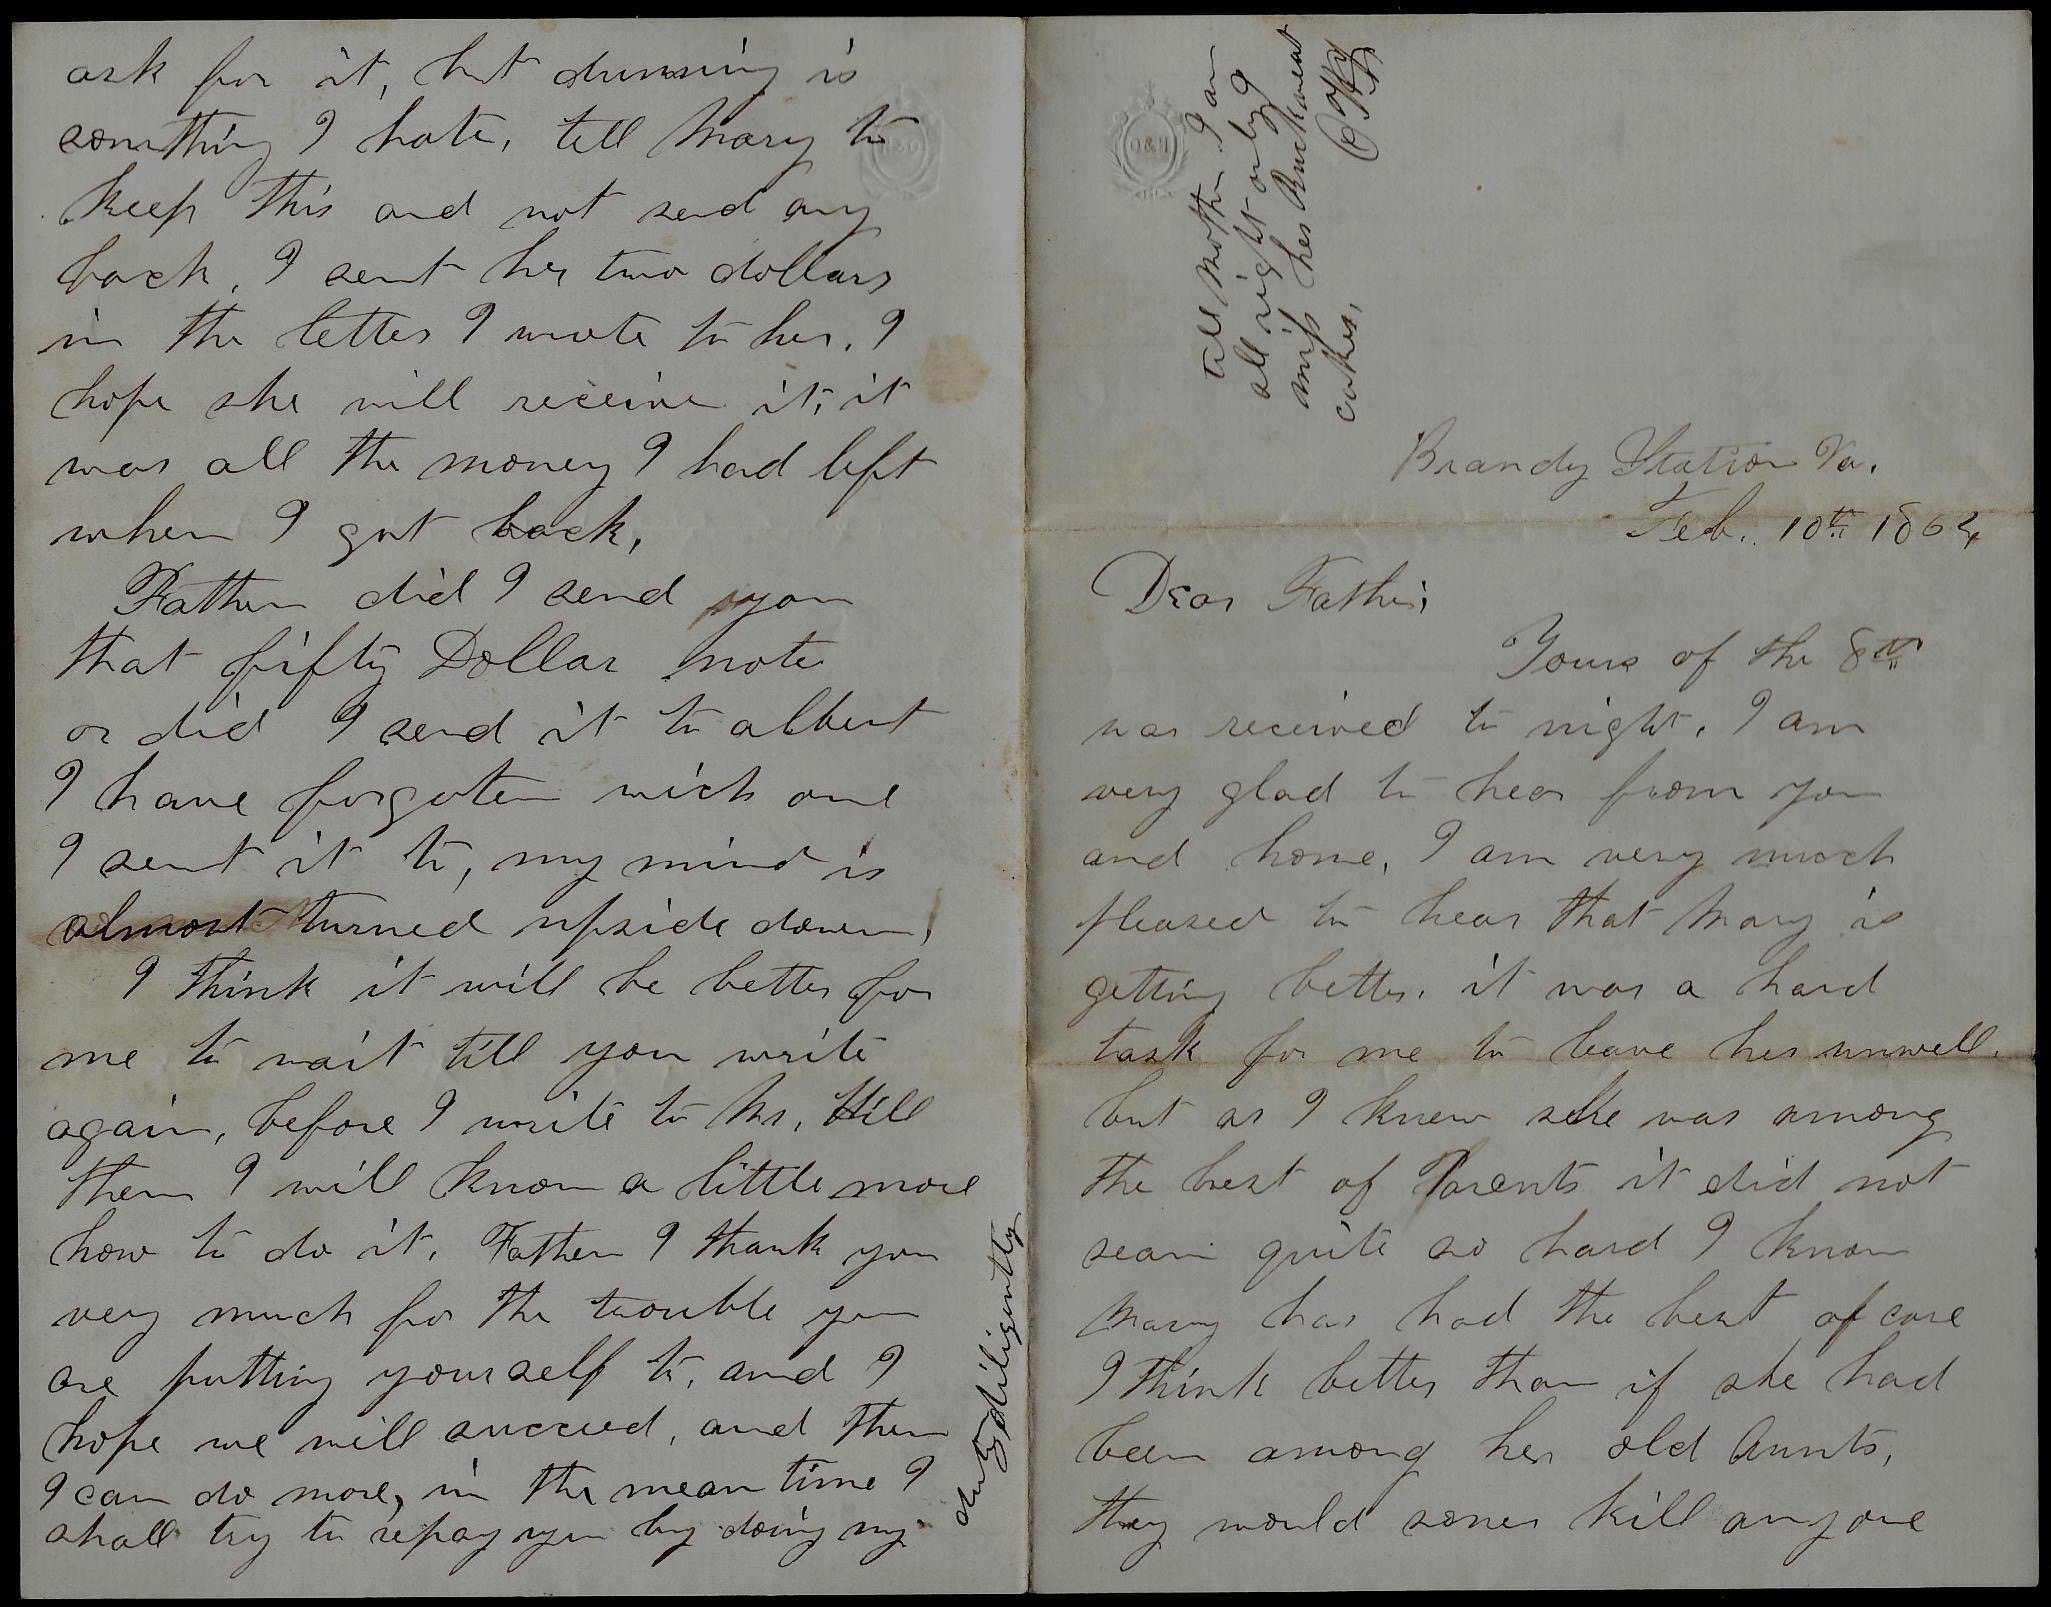 Brandy Station Va.
Feb. 10th 1864
Dear Father;
Yours of the 8th
was received to night. I am
very glad to hear from you
and home, I am very much
pleased to hear that Mary is
getting better. it was a hard
task for me to leave her unwell.
but as I knew she was among
the best of Parents it did not
seam quite so hard I know
Mary has had the best of care
I think better than if she had
been among her old Aunts,
they would soner kill anyone
ask for it, but dunning is
something I hate, tell Mary to
keep this and not send any
back, I sent her two dollars
in the letter I wrote to her. I
hope she will receive it, it
was all the money I had left
when I got back,
Father did I send you
that fifty Dollar note
or did I send it to albert
I have forgoten wich one
I sent it to, my mind is
almost turned upside down,
I think it will be better for
me to wait till you write
again, before I write to Mr. Hill
then I will know a little more
how to do it. Father I thank you
very much for the trouble you
are putting yourself to, and I
hope we will succeed, and then
I can do more, in the mean time I
shall try to repay you by doing my
duty diligently
tell Mother I am
all right only I
miss her Buckwheat
cakes,
O & H